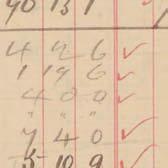 90 13 1
4 4 6 ✓
1 19 6 ✓
4 0 0 ✓
" " "
7 4 0 ✓
5 10 9 ✓